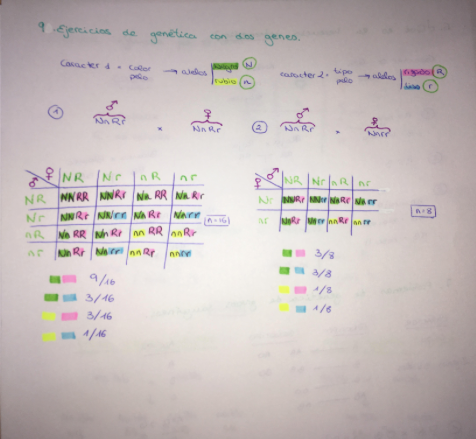 9. Ejercicios de genética con dos genes.
caracter 1 = color pelo → alelos negro N
rubio n
caracter 2 = tipo pelo → alelos rizado R
liso r
① ♂ NnRr x ♀ NnRr
② ♂ NnRr x ♀ Nnrr
♂ ♀ NR Nr nR nr
NR NNRR NNRr NnRR NnRr
Nr NNRr NNrr NnRr Nnrr
nR NnRR NnRr nnRR nnRr
nr NnRr Nnrr nnRr nnrr
n=16
9/16
3/16
3/16
1/16
♀ ♂ NR Nr nR nr
Nr NNRr NNrr NnRr Nnrr
nr NnRr Nnrr nnRr nnrr
n=8
3/8
3/8
1/8
1/8